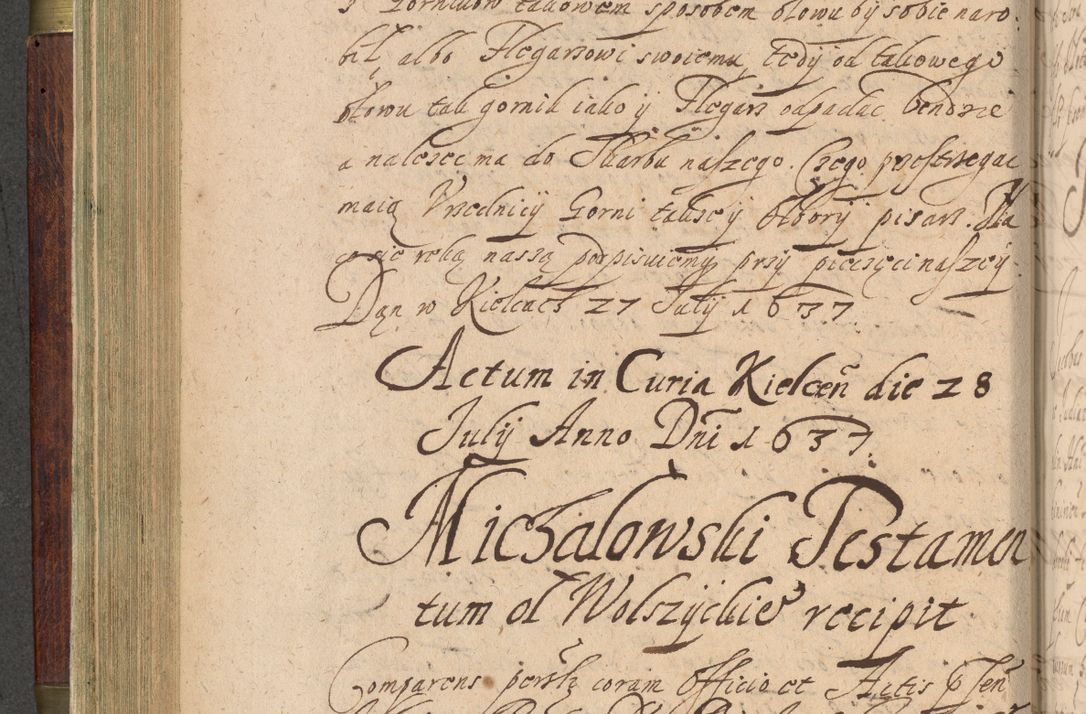 z Gornikow takowem sposobem ołowu by sobie naro
bił, albo Flegarzowi swoiemu, tedy od takowego
ołowu tak gornik iako y Flegarz odpadać bendzie
a należec ma do Skarbu naszego. Czego przestrzegac
maią Vrzednicy Gorni takze y Olbory pisarz. Dla
czego się ręką naszą podpisuiemy przy pieczęci naszey
Dąn w Kielcach 27 July 1637.
Actum in Curia Kielceñ die 28
July Anno Dñi 1637.
Michałowski Testamen
tum ol Wolszyckie recipit
Comparens persłr coram Officio et Actis p̱señ